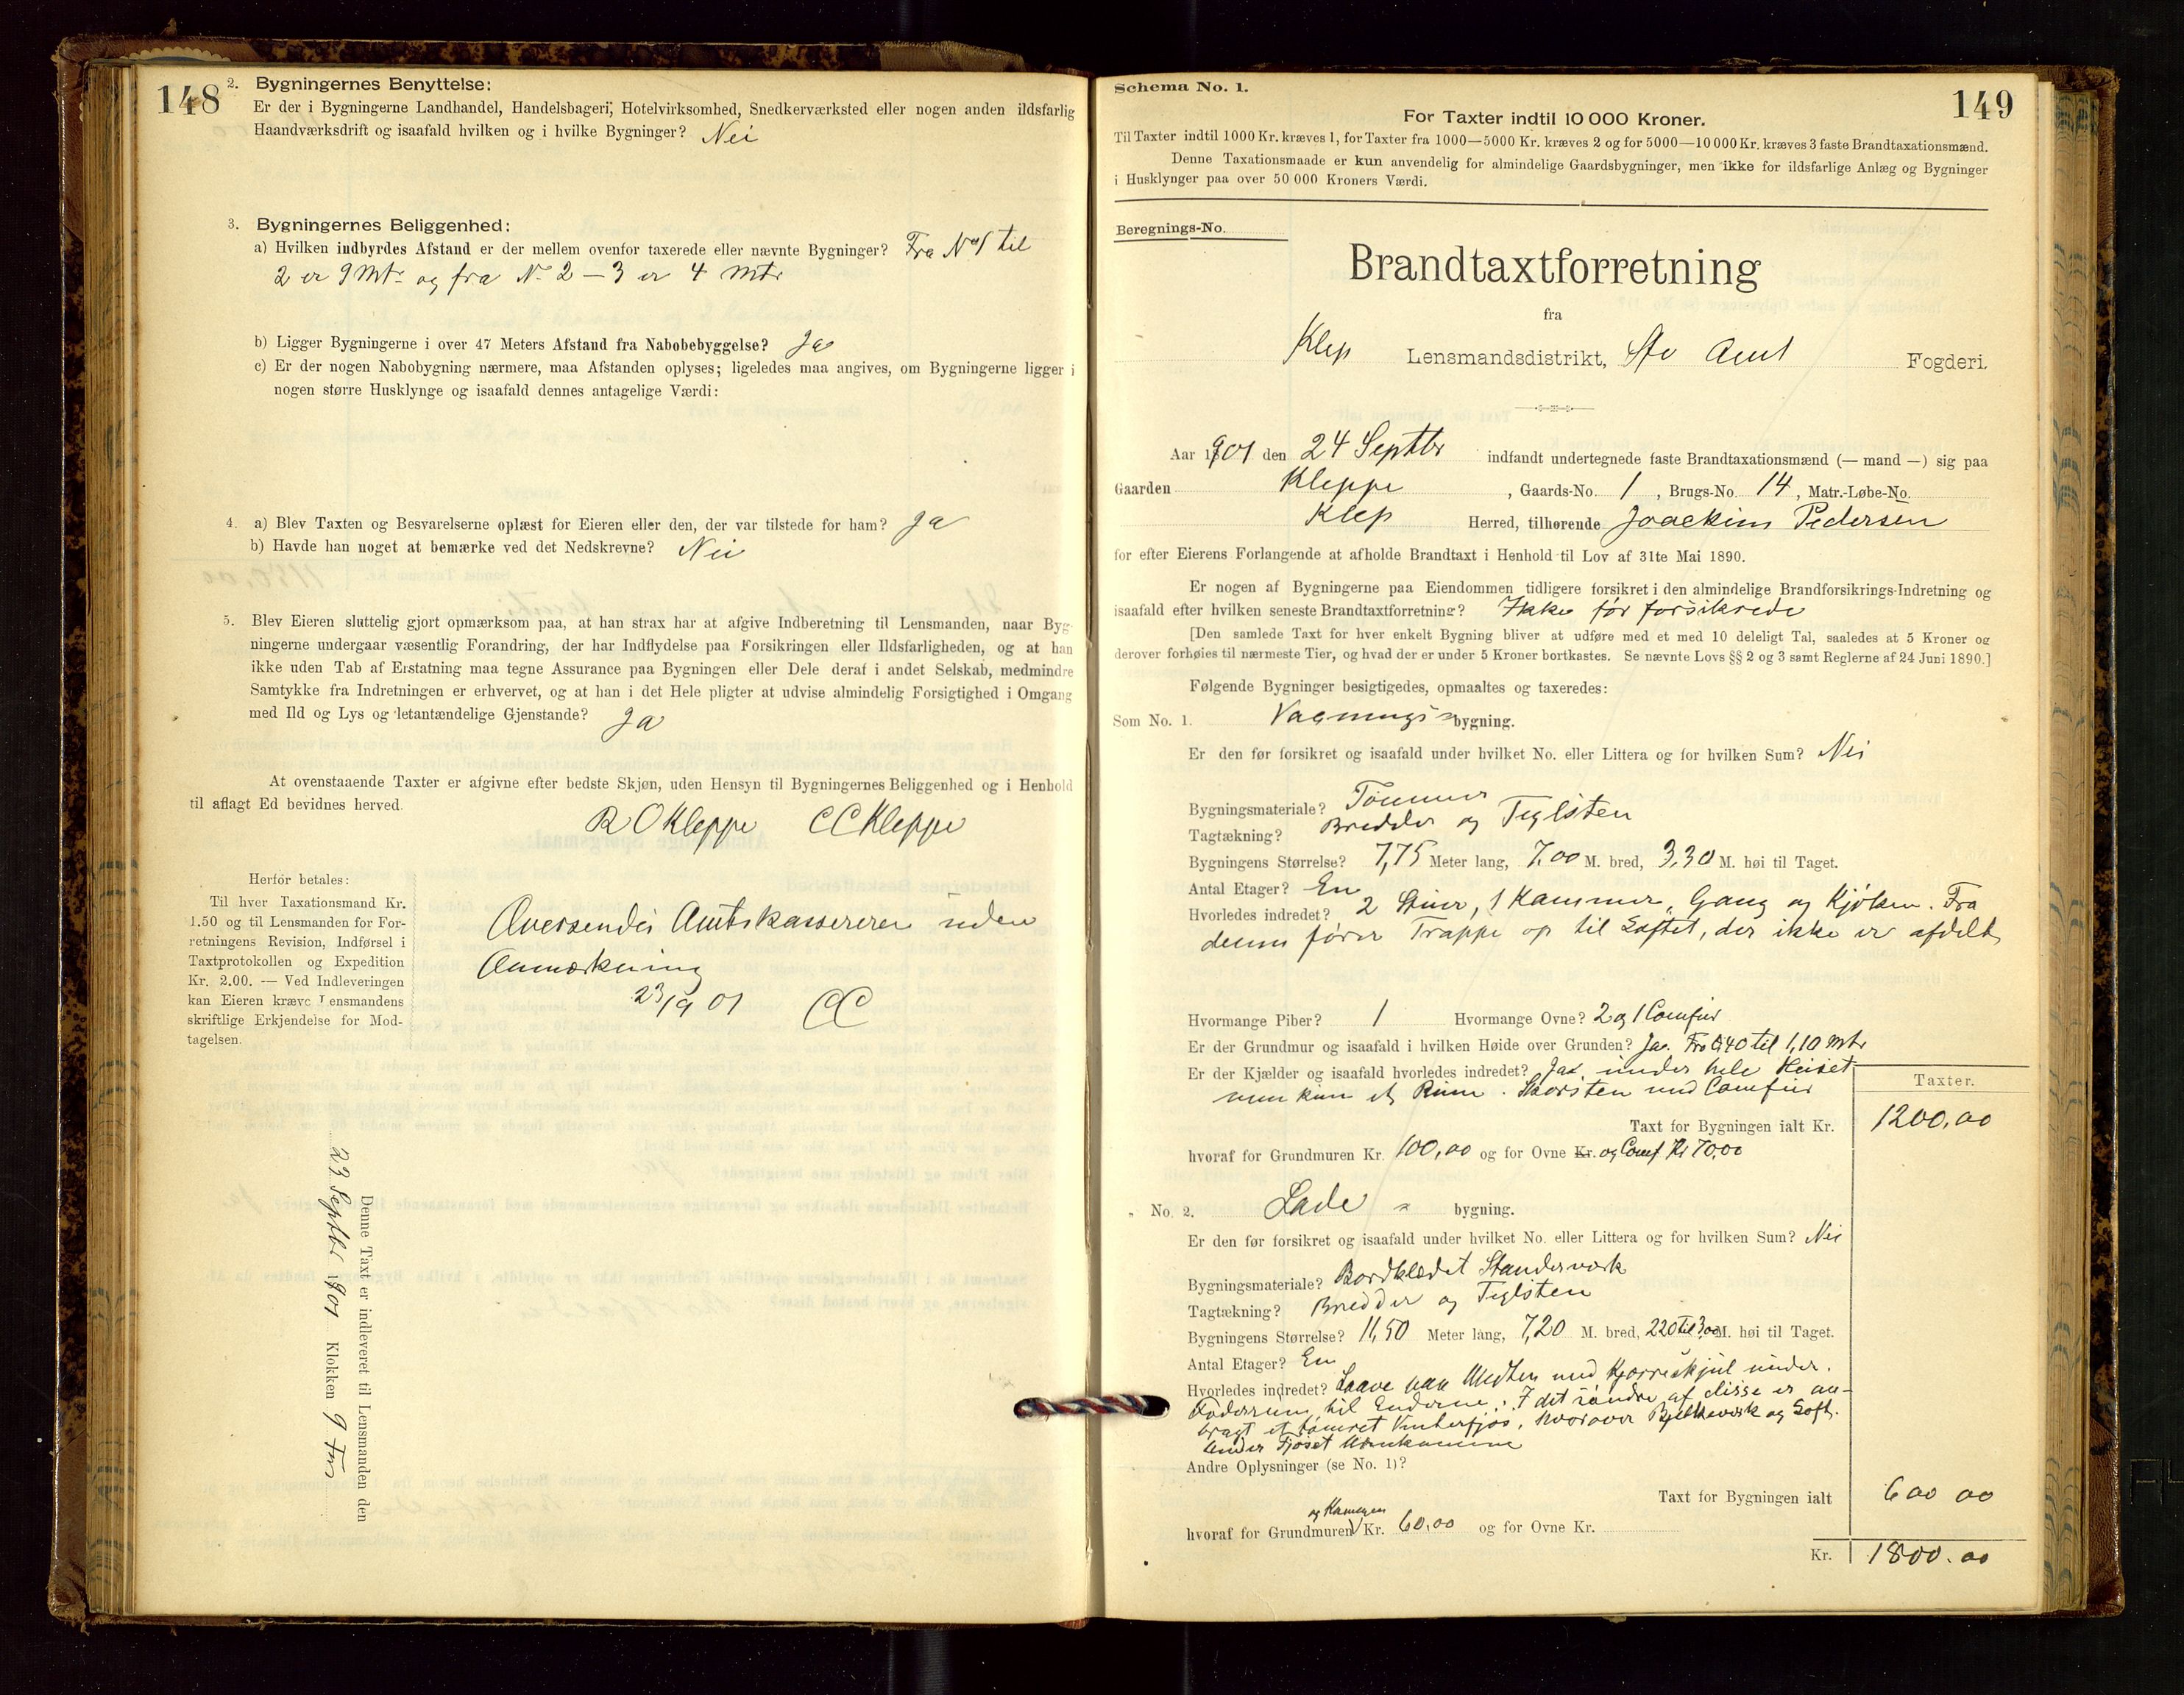 148
2. Bygningernes Benyttelse:
Er der i Bygningerne Landhandel, Handelsbageri, Hotelvirksomhed, Snedkerværksted eller nogen anden ildsfarlig
Haandværksdrift og isaafald hvilken og i hvilke Bygninger? Nei
3. Bygningernes Beliggenhed:
a) Hvilken indbyrdes Afstand er der mellem ovenfor taxerede eller nævnte Bygninger? Fra No 1 til
2 er 9 Mtr og fra No 2 – 3 er 4 mtr
b) Ligger Bygningerne i over 47 Meters Afstand fra Nabobebyggelse? Ja
c) Er der nogen Nabobygning nærmere, maa Afstanden oplyses; ligeledes maa angives, om Bygningerne ligger i
nogen større Husklynge og isaafald dennes antagelige Værdi:
4. a) Blev Taxten og Besvarelserne oplæst for Eieren eller den, der var tilstede for ham? Ja
b) Havde han noget at bemærke ved det Nedskrevne? Nei
5. Blev Eieren sluttelig gjort opmærksom paa, at han strax har at afgive Indberetning til Lensmanden, naar Byg-
ningerne undergaar væsentlig Forandring, der har Indflydelse paa Forsikringen eller Ildsfarligheden, og at han
ikke uden Tab af Erstatning maa tegne Assurance paa Bygningen eller Dele deraf i andet Selskab, medmindre
Samtykke fra Indretningen er erhvervet, og at han i det Hele pligter at udvise almindelig Forsigtighed i Omgang
med Ild og Lys og letantændelige Gjenstande? Ja
At ovenstaaende Taxter er afgivne efter bedste Skjøn, uden Hensyn til Bygningernes Beliggenhed og i Henhold
til aflagt Ed bevidnes herved.
R O Kleppe C C Kleppe
Herfor betales:
Til hver Taxationsmand Kr.
1.50 og til Lensmanden for For-
retningens Revision, Indførsel i
Taxtprotokollen og Expedition
Kr. 2.00. — Ved Indleveringen
kan Eieren kræve Lensmandens
skriftlige Erkjendelse for Mod-
tagelsen.
Oversendes Amtskassereren uden
Anmærkning
23/9 01 CC
Denne Taxt er indleveret til Lensmanden den
23 Septbr 1901 Klokken 9 Fm
Schema No. 1.
149
For Taxter indtil 10 000 Kroner.
Til Taxter indtil 1000 Kr. kræves 1, for Taxter fra 1000—5000 Kr. kræves 2 og for 5000—10 000 Kr. kræves 3 faste Brandtaxationsmænd.
Denne Taxationsmaade er kun anvendelig for almindelige Gaardsbygninger, men ikke for ildsfarlige Anlæg og Bygninger
i Husklynger paa over 50 000 Kroners Værdi.
Beregnings-No.
Brandtaxtforretning
fra
Klep Lensmandsdistrikt, Stv Amt Fogderi.
Aar 1901 den 24 Septbr indfandt undertegnede faste Brandtaxationsmænd (— mand —) sig paa
Gaarden Kleppe, Gaards-No. 1, Brugs-No. 14, Matr.-Løbe-No.
Klep Herred, tilhørende Joackim Pedersen
for efter Eierens Forlangende at afholde Brandtaxt i Henhold til Lov af 31te Mai 1890.
Er nogen af Bygningerne paa Eiendommen tidligere forsikret i den almindelige Brandforsikrings-Indretning og
isaafald efter hvilken seneste Brandtaxtforretning? Ikke før forsikrede
[Den samlede Taxt for hver enkelt Bygning bliver at udføre med et med 10 deleligt Tal, saaledes at 5 Kroner og
derover forhøies til nærmeste Tier, og hvad der er under 5 Kroner bortkastes. Se nævnte Lovs §§ 2 og 3 samt Reglerne af 24 Juni 1890.]
Følgende Bygninger besigtigedes, opmaaltes og taxeredes:
Som No. 1. Vaanings bygning.
Er den før forsikret og isaafald under hvilket No. eller Littera og for hvilken Sum? Nei
Bygningsmateriale? Tømmer
Tagtækning? Bredder og Teglsten
Bygningens Størrelse? 7,75 Meter lang, 7,00 M. bred, 3,30 M. høi til Taget.
Antal Etager? En
Hvorledes indredet? 2 Stuer, 1 Kammer, Gang og Kjøken. Fra
denne fører Trappe op til Loftet, der ikke er afdelt
Hvormange Piber? 1 Hvormange Ovne? 2 og 1 Comfur
Er der Grundmur og isaafald i hvilken Høide over Grunden? Ja. Fra 0,40 til 1,10 mtr
Er der Kjælder og isaafald hvorledes indredet? Ja, under hele Huset
men kun et Rum. Skorsten med Comfur
Taxter.
Taxt for Bygningen ialt Kr. 1200,00
hvoraf for Grundmuren Kr. 100,00 og for Ovne Kr. og Comf Kr 70,00
„ No. 2. Lade bygning.
Er den før forsikret og isaafald under hvilket No. eller Littera og for hvilken Sum? Nei
Bygningsmateriale? Bordklædt Standerværk
Tagtækning? Bredder og Teglsten
Bygningens Størrelse? 11,50 Meter lang, 7,20 M. bred, 2,20 til 3,00 M. høi til Taget.
Antal Etager? En
Hvorledes indredet? Laave paa Midten med Kjærreskjul under.
Foderrum til Enderne. I det søndre af disse er an-
bragt et tømret Vinterfjøs, hvorover Bjelkeverk og Loft.
Under Fjøset
Andre Oplysninger (se No. 1)?
Taxt for Bygningen ialt 600 00
hvoraf for Grundmuren Kr. 60,00 og for Ovne Kr.
Kr. 1800.00